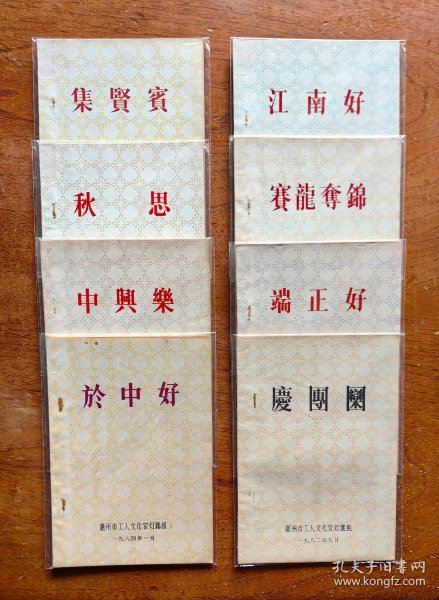 集賢賓
秋思
中興樂
於中好
潮州市工人文化宮灯謎組
一九八四年一月
江南好
賽龍奪錦
端正好
慶團圞
潮州市工人文化宮灯謎組
一九八二年九月
孔夫子旧书网
www.kongfz.com